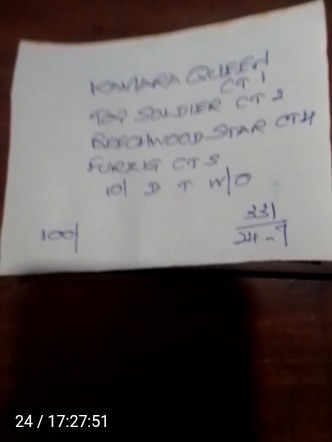 KAMARA QUEEN
CT 1
TOP SOLDIER CT 2
BEECHWOOD STAR CT 4
CT 3
10/ D T W/O
331
100/
24-7
24 / 17:27:51